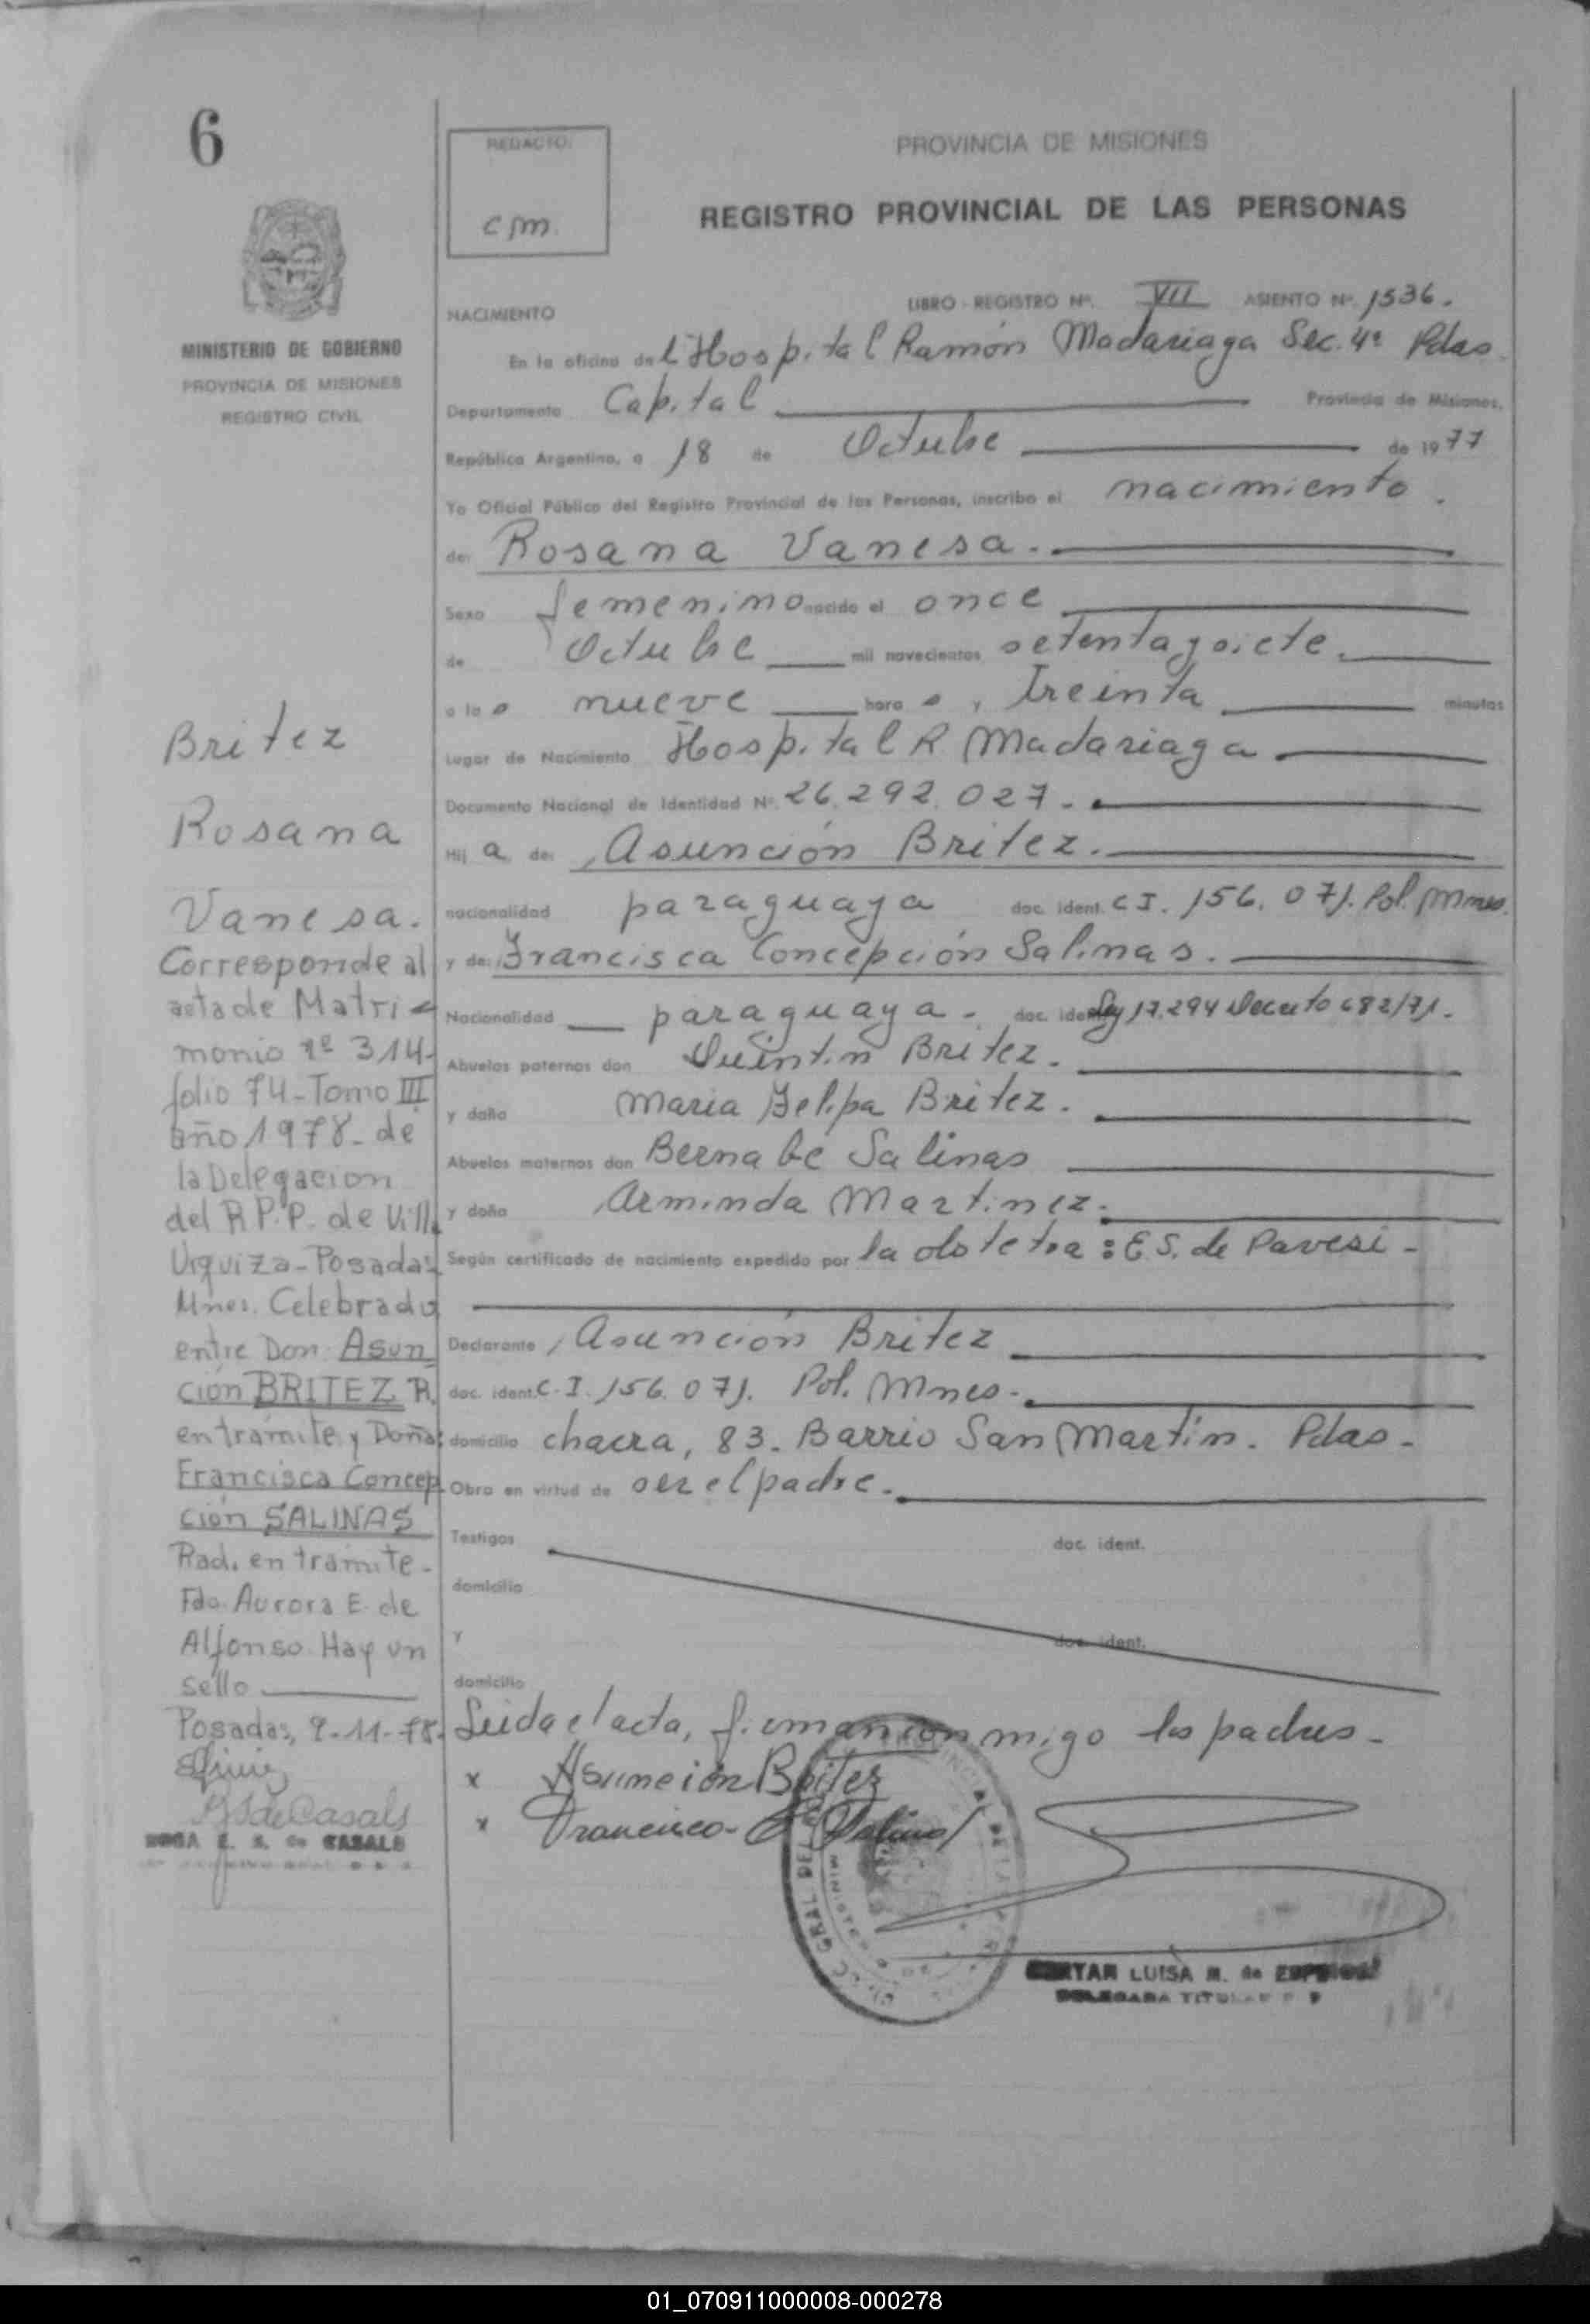 6
REDACTO:
cm.
PROVINCIA DE MISIONES
REGISTRO PROVINCIAL DE LAS PERSONAS
MINISTERIO DE GOBIERNO
PROVINCIA DE MISIONES
REGISTRO CIVIL
NACIMIENTO
LIBRO - REGISTRO Nº. VII ASIENTO Nº. 1536.
En la oficina del Hospital Ramón Madariaga Sec. 4ª Pdas.
Departamento Capital Provincia de Misiones,
República Argentina, a 18 de Octubre de 1977
Yo Oficial Público del Registro Provincial de las Personas, inscribo el nacimiento.
de: Rosana Vanesa.
Sexo femenino nacido el once
de Octubre mil novecientos setentaysiete.
a las nueve horas y treinta minutos
Lugar de Nacimiento Hospital R Madariaga
Documento Nacional de Identidad Nº. 26.292.027.
Hija de: Asunción Britez.
nacionalidad paraguaya doc. ident. C I. 156.071. Pol. Mnes.
y de: Francisca Concepción Salinas.
Nacionalidad paraguaya. doc. ident. Ley 17.294 Decreto 682/71.
Abuelos paternos don Quintin Britez.
y doña Maria Felipa Britez.
Abuelos maternos don Bernabé Salinas
y doña Arminda Martinez.
Según certificado de nacimiento expedido por la obstetra: E.S. de Pavesi -
Declarante, Asunción Britez
doc. ident. C.I. 156.071. Pol. Mnes.
domicilio chacra, 83. Barrio San Martín. Pdas.
Obra en virtud de ser el padre.
Testigos doc. ident.
domicilio
y doc. ident.
domicilio
Leida el acta, firman conmigo los padres -
x Asunción Britez
x Francisca C Salinas
LUISA M. de
Britez
Rosana
Vanesa.
Corresponde al
acta de Matri
monio nº 314-
folio 74-Tomo III
año 1978- de
la Delegacion
del R.P.P. de Villa
Urquiza-Posadas
Mnes. Celebrado
entre Don: Asun
ción BRITEZ R.
en tramite y Doña:
Francisca Concep
ción SALINAS
Rad. en tramite -
Fdo. Aurora E. de
Alfonso. Hay un
sello
Posadas, 9-11-78.
ROSA E. S. de CASALS
01_070911000008-000278